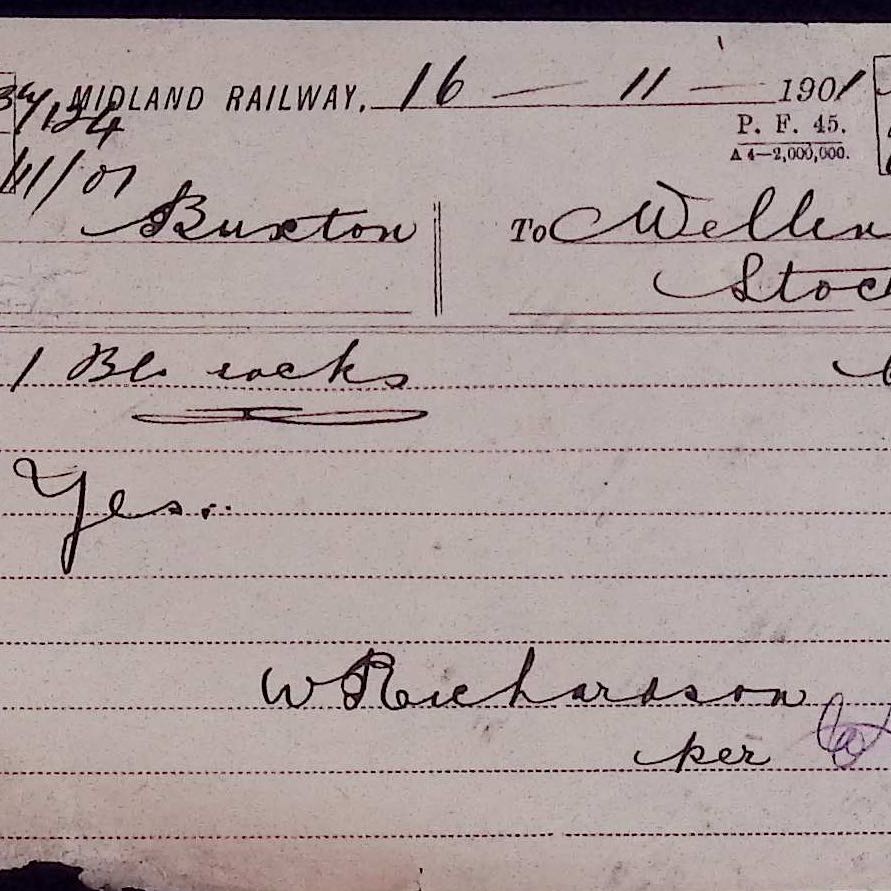 MIDLAND RAILWAY, 16 — 11 — 1901
P. F. 45.
A 4—2,000,000.
/124
11/01
Buxton
To Wellin
Stoc
1 Bl. sacks
Yes.
W Richardson
per